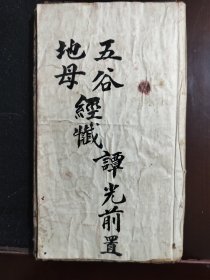 五谷
地母
經懺
譚光前置